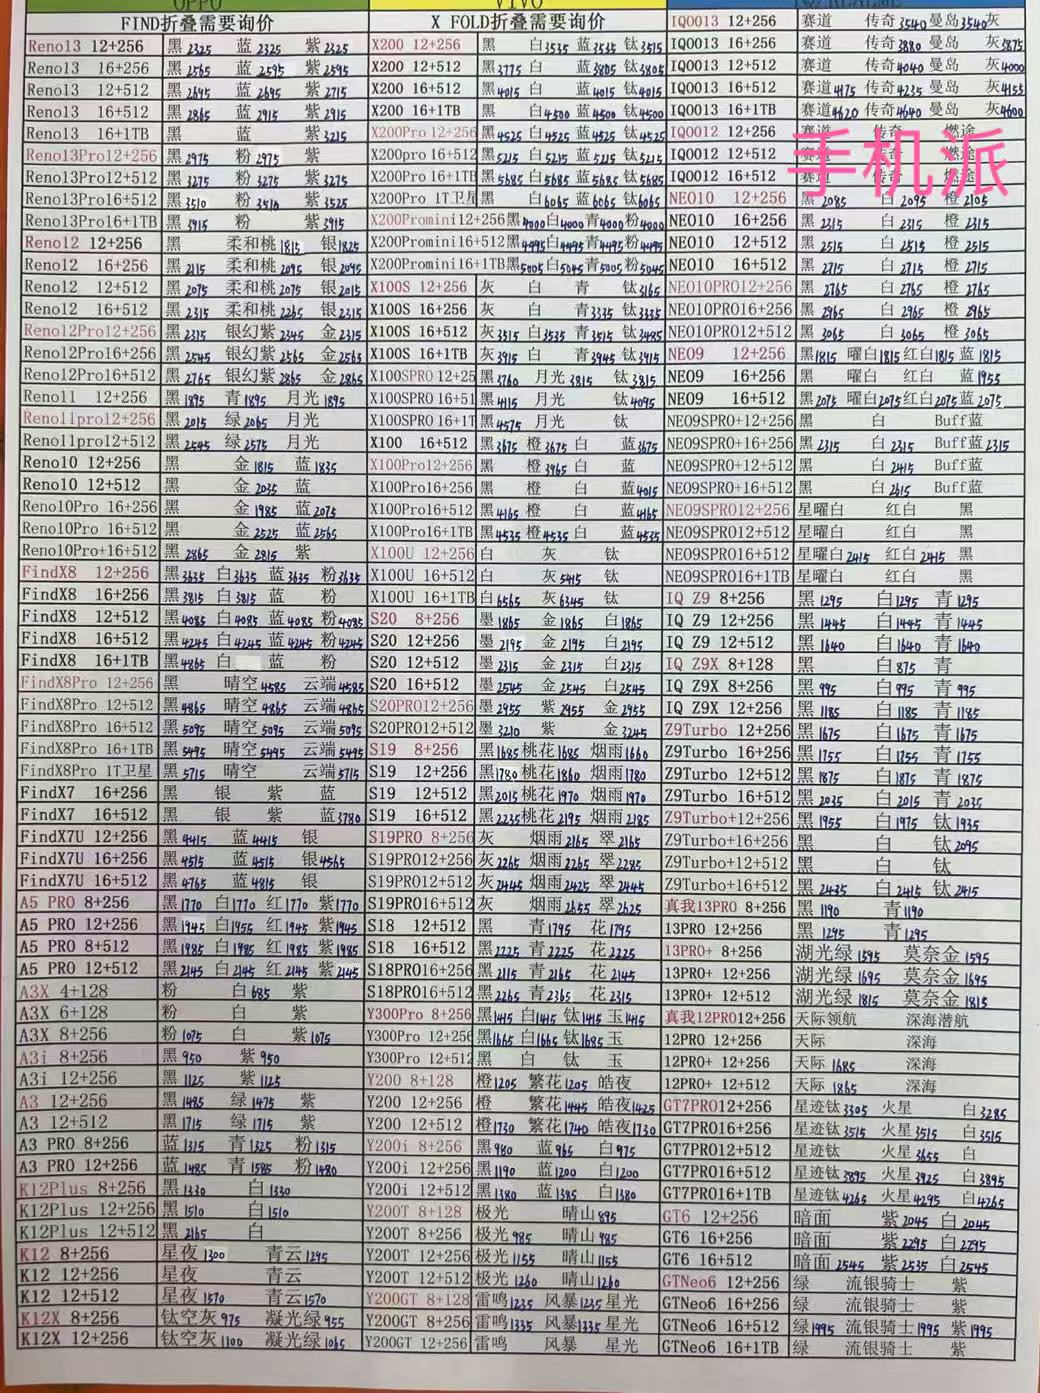 OPPO
FIND折叠需要询价
Reno13 12+256 黑2325 蓝2325 紫2325
Reno13 16+256 黑2565 蓝2595 紫2595
Reno13 12+512 黑2695 蓝2695 紫2715
Reno13 16+512 黑2865 蓝2915 紫2915
Reno13 16+1TB 黑 蓝 紫3215
Reno13Pro12+256 黑2975 粉2975 紫
Reno13Pro12+512 黑3275 粉3275 紫3275
Reno13Pro16+512 黑3510 粉3510 紫3525
Reno13Pro16+1TB 黑3915 粉 紫3915
Reno12 12+256 黑 柔和桃1815 银1825
Reno12 16+256 黑2115 柔和桃2095 银2095
Reno12 12+512 黑2075 柔和桃2075 银2015
Reno12 16+512 黑2315 柔和桃2265 银2315
Reno12Pro12+256 黑2315 银幻紫2345 金2315
Reno12Pro16+256 黑2545 银幻紫2565 金2565
Reno12Pro16+512 黑2765 银幻紫2865 金2865
Reno11 12+256 黑1895 青1895 月光1895
Reno11pro12+256 黑2015 绿2065 月光
Reno11pro12+512 黑2545 绿2575 月光
Reno10 12+256 黑 金1815 蓝1835
Reno10 12+512 黑 金2035 蓝
Reno10Pro 16+256 黑 金1985 蓝2075
Reno10Pro 16+512 黑 金2525 蓝2565
Reno10Pro+16+512 黑2865 金2815 紫
FindX8 12+256 黑3635 白3635 蓝3635 粉3635
FindX8 16+256 黑3815 白3815 蓝 粉
FindX8 12+512 黑4085 白4085 蓝4085 粉4085
FindX8 16+512 黑4245 白4245 蓝4245 粉4245
FindX8 16+1TB 黑4865 白 蓝 粉
FindX8Pro 12+256 黑 晴空4585 云端4585
FindX8Pro 12+512 黑4865 晴空4865 云端4865
FindX8Pro 16+512 黑5095 晴空5095 云端5095
FindX8Pro 16+1TB 黑5495 晴空5495 云端5495
FindX8Pro 1T卫星 黑5715 晴空 云端5715
FindX7 16+256 黑 银 紫 蓝
FindX7 16+512 黑 银 紫 蓝3780
FindX7U 12+256 黑4415 蓝4415 银
FindX7U 16+256 黑4515 蓝4515 银4565
FindX7U 16+512 黑4765 蓝4815 银
A5 PRO 8+256 黑1770 白1770 红1770 紫1770
A5 PRO 12+256 黑1945 白1955 红1945 紫1945
A5 PRO 8+512 黑1985 白1985 红1985 紫1985
A5 PRO 12+512 黑2145 白2145 红2145 紫2145
A3X 4+128 粉 白685 紫
A3X 6+128 粉 白 紫
A3X 8+256 粉1075 白 紫1075
A3i 8+256 黑950 紫950
A3i 12+256 黑1125 紫1125
A3 12+256 黑1485 绿1475 紫
A3 12+512 黑1715 绿1715 紫
A3 PRO 8+256 蓝1315 青1325 粉1315
A3 PRO 12+256 蓝1485 青1585 粉1480
K12Plus 8+256 黑1330 白1330
K12Plus 12+256 黑1510 白1510
K12Plus 12+512 黑2165 白
K12 8+256 星夜1300 青云1295
K12 12+256 星夜 青云
K12 12+512 星夜1570 青云1570
K12X 8+256 钛空灰975 凝光绿955
K12X 12+256 钛空灰1100 凝光绿1065
VIVO
X FOLD折叠需要询价
X200 12+256 黑 白3535 蓝3535 钛3515
X200 12+512 黑3775 白 蓝3805 钛3805
X200 16+512 黑4015 白 蓝4015 钛4015
X200 16+1TB 黑 白4500 蓝4500 钛4500
X200Pro 12+256 黑4525 白4525 蓝4525 钛4525
X200pro 16+512 黑5215 白5215 蓝5215 钛5215
X200Pro 16+1TB 黑5685 白5685 蓝5685 钛5685
X200Pro 1T卫星 黑 白6065 蓝6065 钛6065
X200Promini12+256 黑4000 白4000 青4000 粉4000
X200Promini16+512 黑4495 白4495 青4495 粉4495
X200Promini16+1TB 黑5005 白5045 青5005 粉5045
X100S 12+256 灰 白 青 钛3165
X100S 16+256 灰 白 青3335 钛3335
X100S 16+512 灰3515 白3535 青3515 钛3485
X100S 16+1TB 灰3915 白 青3945 钛3915
X100SPRO 12+25 黑3760 月光3815 钛3815
X100SPRO 16+51 黑4115 月光 钛4095
X100SPRO 16+1T 黑4575 月光 钛
X100 16+512 黑3675 橙3675 白 蓝3675
X100Pro12+256 黑 橙3965 白 蓝
X100Pro16+256 黑 橙 白 蓝4015
X100Pro16+512 黑4165 橙 白 蓝4165
X100Pro16+1TB 黑4535 橙4535 白 蓝4535
X100U 12+256 白 灰 钛
X100U 16+512 白 灰5415 钛
X100U 16+1TB 白6565 灰6345 钛
S20 8+256 墨1865 金1865 白1865
S20 12+256 墨2195 金2195 白2195
S20 12+512 墨2315 金2315 白2315
S20 16+512 墨2545 金2545 白2545
S20PRO12+256 墨2955 紫2955 金2955
S20PRO12+512 墨3210 紫 金3245
S19 8+256 黑1685 桃花1685 烟雨1660
S19 12+256 黑1780 桃花1860 烟雨1780
S19 12+512 黑2015 桃花1970 烟雨1970
S19 16+512 黑2235 桃花2195 烟雨2185
S19PRO 8+256 灰 烟雨2165 翠2165
S19PRO12+256 灰2265 烟雨2265 翠2285
S19PRO12+512 灰2445 烟雨2425 翠2445
S19PRO16+512 灰 烟雨2655 翠2625
S18 12+256 黑 青1795 花1795
S18 16+512 黑2225 青2225 花2225
S18PRO16+256 黑2115 青2165 花2145
S18PRO16+512 黑2265 青2365 花2315
Y300Pro 8+256 黑1415 白1415 钛1415 玉1415
Y300Pro 12+256 黑1665 白1665 钛1685 玉
Y300Pro 12+512 黑 白 钛 玉
Y200 8+128 橙1205 繁花1205 皓夜
Y200 12+256 橙 繁花1445 皓夜1425
Y200 12+512 橙1730 繁花1740 皓夜1730
Y200i 8+256 黑980 蓝965 白975
Y200i 12+256 黑1190 蓝1200 白1200
Y200i 12+512 黑1380 蓝1385 白1380
Y200T 8+128 极光 晴山895
Y200T 8+256 极光985 晴山985
Y200T 12+256 极光1155 晴山1155
Y200T 12+512 极光1260 晴山1260
Y200GT 8+128 雷鸣1235 风暴1235 星光
Y200GT 8+256 雷鸣1335 风暴1335 星光
Y200GT 12+256 雷鸣 风暴 星光
IQOO13 12+256 赛道 传奇3540 曼岛3540 灰
IQOO13 16+256 赛道 传奇3880 曼岛 灰3875
IQOO13 12+512 赛道 传奇4040 曼岛 灰4000
IQOO13 16+512 赛道4175 传奇4235 曼岛 灰4155
IQOO13 16+1TB 赛道4620 传奇4640 曼岛 灰4600
IQOO12 12+256 赛道 传奇 燃途
IQOO12 12+512 赛道 燃途
IQOO12 16+512 赛道 燃途
手机派
NEO10 12+256 黑2085 白2095 橙2105
NEO10 16+256 黑2315 白2315 橙2315
NEO10 12+512 黑2515 白2515 橙2515
NEO10 16+512 黑2715 白2715 橙2715
NEO10PRO12+256 黑2765 白2765 橙2765
NEO10PRO16+256 黑2965 白2965 橙2965
NEO10PRO12+512 黑3065 白3065 橙3065
NEO9 12+256 黑1815 曜白1815 红白1815 蓝1815
NEO9 16+256 黑 曜白 红白 蓝1955
NEO9 16+512 黑2075 曜白2075 红白2075 蓝2075
NEO9SPRO+12+256 黑 白 Buff蓝
NEO9SPRO+16+256 黑2315 白2315 Buff蓝2315
NEO9SPRO+12+512 黑 白2415 Buff蓝
NEO9SPRO+16+512 黑 白2615 Buff蓝
NEO9SPRO12+256 星曜白 红白 黑
NEO9SPRO12+512 星曜白 红白 黑
NEO9SPRO16+512 星曜白2415 红白2415 黑
NEO9SPRO16+1TB 星曜白 红白 黑
IQ Z9 8+256 黑1295 白1295 青1295
IQ Z9 12+256 黑1445 白1445 青1445
IQ Z9 12+512 黑1640 白1640 青1640
IQ Z9X 8+128 黑 白875 青
IQ Z9X 8+256 黑995 白995 青995
IQ Z9X 12+256 黑1185 白1185 青1185
Z9Turbo 12+256 黑1675 白1675 青1675
Z9Turbo 16+256 黑1755 白1755 青1755
Z9Turbo 12+512 黑1875 白1875 青1875
Z9Turbo 16+512 黑2035 白2015 青2035
Z9Turbo+12+256 黑1955 白1975 钛1935
Z9Turbo+16+256 黑 白 钛2095
Z9Turbo+12+512 黑 白 钛
Z9Turbo+16+512 黑2435 白2415 钛2415
真我13PRO 8+256 黑1190 青1190
13PRO 12+256 黑1295 青1295
13PRO+ 8+256 湖光绿1595 莫奈金1595
13PRO+ 12+256 湖光绿1695 莫奈金1695
13PRO+ 12+512 湖光绿1815 莫奈金1815
真我12PRO12+256 天际领航 深海潜航
12PRO 12+256 天际 深海
12PRO+ 12+256 天际1685 深海
12PRO+ 12+512 天际1865 深海
GT7PRO12+256 星迹钛3305 火星 白3285
GT7PRO16+256 星迹钛3515 火星3515 白3515
GT7PRO12+512 星迹钛 火星3655 白
GT7PRO16+512 星迹钛3895 火星3925 白3895
GT7PRO16+1TB 星迹钛4265 火星4295 白4265
GT6 12+256 暗面 紫2045 白2045
GT6 16+256 暗面 紫2295 白2295
GT6 16+512 暗面2545 紫2535 白2545
GTNeo6 12+256 绿 流银骑士 紫
GTNeo6 16+256 绿 流银骑士 紫
GTNeo6 16+512 绿1995 流银骑士1995 紫1995
GTNeo6 16+1TB 绿 流银骑士 紫